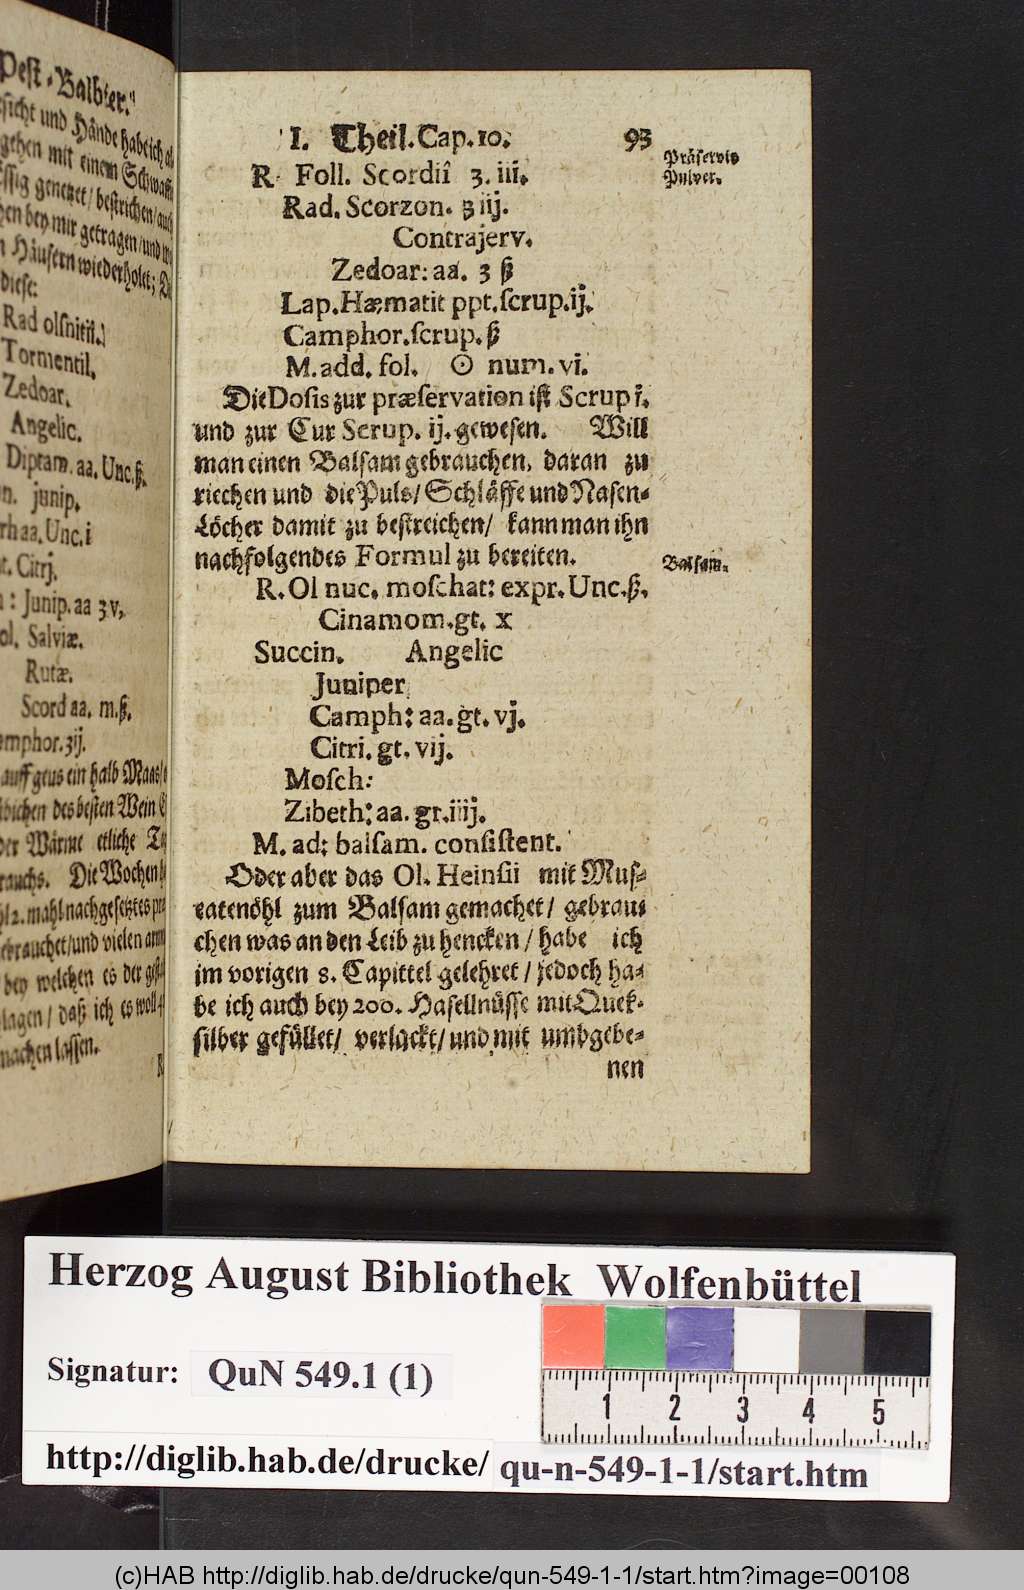 Pest-Balbier.
sicht und Hände habe ich
gehen mit einem
genetzet / bestrichen / auch
bey mir getragen / und
Häusern wiederholet;
diese:
Rad olsnitii.
Tormentil.
Zedoar.
Angelic.
Diptam. aa. Unc.ß.
junip.
aa. Unc. i
Citrj.
: Junip. aa ʒ v,
Salviæ.
Rutæ.
Scord aa. m.ß.
ʒij.
auff geus ein halb Maas
des besten Wein
der Wärme etliche
Die Wochen
2. mahl nachgesetztes
gebrauchet / und vielen
bey welchen es der
/ daß ich es woll
machen lassen.
I. Theil. Cap. 10. 93
R Foll. Scordii ʒ. iii.
Präservir
Pulver.
Rad. Scorzon. ʒ iij.
Contrajerv.
Zedoar: aa. ʒ ß
Lap. Hæmatit ppt. ſcrup. ij.
Camphor. ſcrup. ß
M. add. fol. ☉ num. vi.
Die Doſis zur præſervation iſt Scrup i.
und zur Cur Scrup. ij. geweſen. Will
man einen Balſam gebrauchen, daran zu
riechen und die Puls / Schläffe und Naſen-
Löcher damit zu beſtreichen / kann man ihn
nachfolgendes Formul zu bereiten.
Balſam.
R. Ol nuc. moſchat: expr. Unc. ß.
Cinamom. gt. x
Succin. Angelic
Juniper
Camph: aa. gt. vj.
Citri. gt. vij.
Moſch:
Zibeth: aa. gr. iiij.
M. ad: balſam. conſiſtent.
Oder aber das Ol. Heinſii mit Muſ-
catenöhl zum Balſam gemachet / gebrau-
chen was an den Leib zu hencken / habe ich
im vorigen 8. Capittel gelehret / jedoch ha-
be ich auch bey 200. Haſellnüſſe mit Quek-
ſilber gefüllet / verlackt / und mit umbgebe-
nen
Herzog August Bibliothek Wolfenbüttel
Signatur: QuN 549.1 (1)
1 2 3 4 5
http://diglib.hab.de/drucke/ qu-n-549-1-1/start.htm
(c)HAB http://diglib.hab.de/drucke/qun-549-1-1/start.htm?image=00108